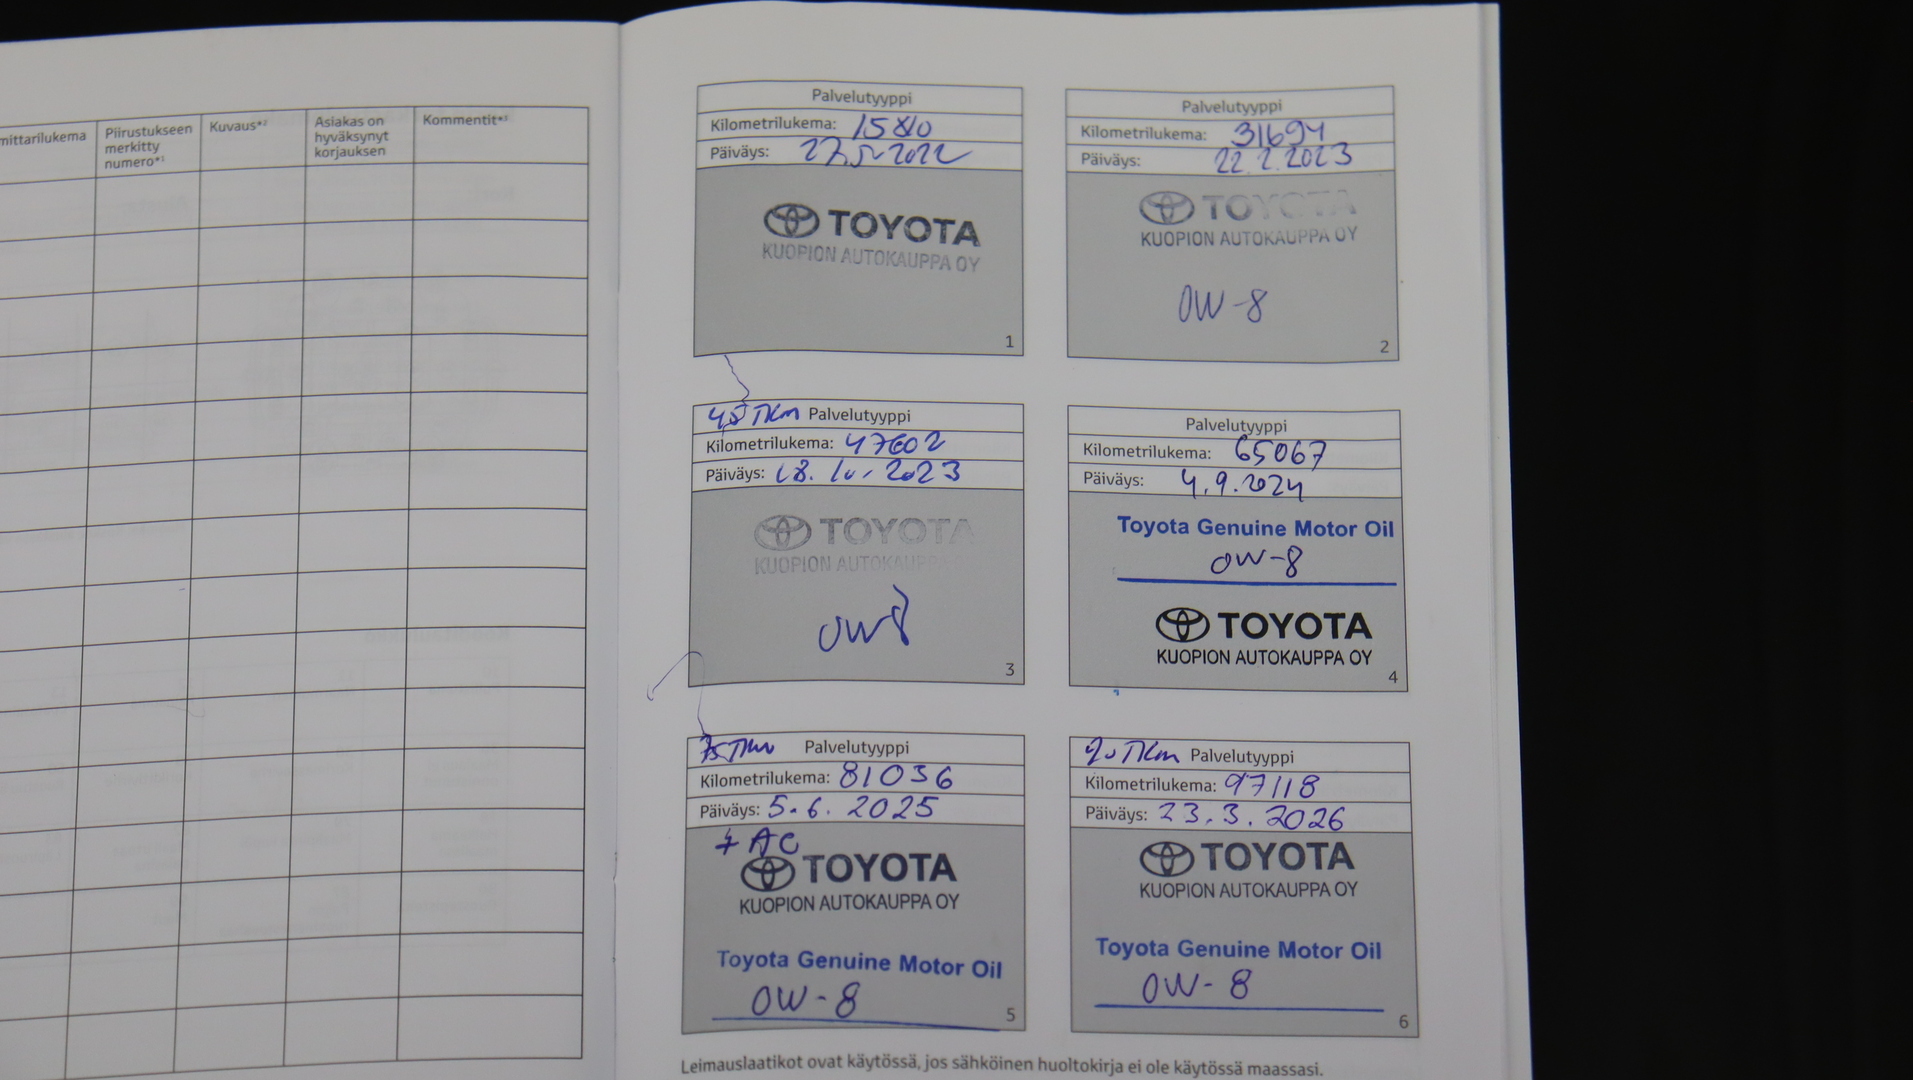 mittarilukema
Piirustukseen
merkitty
numero*¹
Kuvaus*²
Asiakas on
hyväksynyt
korjauksen
Kommentit*³
Palvelutyyppi
Kilometrilukema: 15810
Päiväys: 27.5.2022
TOYOTA
KUOPION AUTOKAUPPA OY
1
Palvelutyyppi
Kilometrilukema: 31694
Päiväys: 22.2.2023
TOYOTA
KUOPION AUTOKAUPPA OY
0W-8
2
45 TKm Palvelutyyppi
Kilometrilukema: 47602
Päiväys: 18.10.2023
TOYOTA
KUOPION AUTOKAUPPA
0W8
3
Palvelutyyppi
Kilometrilukema: 65067
Päiväys: 4.9.2024
Toyota Genuine Motor Oil
0W-8
TOYOTA
KUOPION AUTOKAUPPA OY
4
75 TKm Palvelutyyppi
Kilometrilukema: 81036
Päiväys: 5.6.2025
+ AC
TOYOTA
KUOPION AUTOKAUPPA OY
Toyota Genuine Motor Oil
0W-8
5
90 TKm Palvelutyyppi
Kilometrilukema: 97118
Päiväys: 23.3.2026
TOYOTA
KUOPION AUTOKAUPPA OY
Toyota Genuine Motor Oil
0W-8
6
Leimauslaatikot ovat käytössä, jos sähköinen huoltokirja ei ole käytössä maassasi.